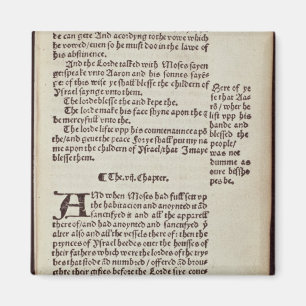 be can gete And acordyng to the vowe which
he vowed/even so he must doo in the lawe of
his abstinence.
And the Lorde talked with Moses sayen
ge: speake vnto Aaron and his sonnes sayen
ge: of this wise ye shall blesse the childern of
Ysrael saynge vnto them.
The lorde blesse the and kepe the.
The lorde make his face shyne apon the &
be mercyfull vnto the.
The lorde lifte vpp his countenaunce apo
the/and geue the peace. For ye shall put my na
me apon the childern of Ysrael/that I maye
blesse them.
Here of ye
se that Aa
rõ/ when he
lift vpp his
hande and
blessed the
people/
was not
dumme as
oure bissho
pes be.
¶ The .vij. Chapter.
AND when Moses had full sett vp
the habitacion and anoynted it ãd
sanctifyed it and all the apparell
there of/and had anoynted and sanctifyed y
alter also and all the vessels there of; then the
prynces of Ysrael heedes ouer the housses of
their fathers which were the lordes of the trybes
that stode ãd numbred/ offered ãd brou
ghte their giftes before the Lorde sixe coue